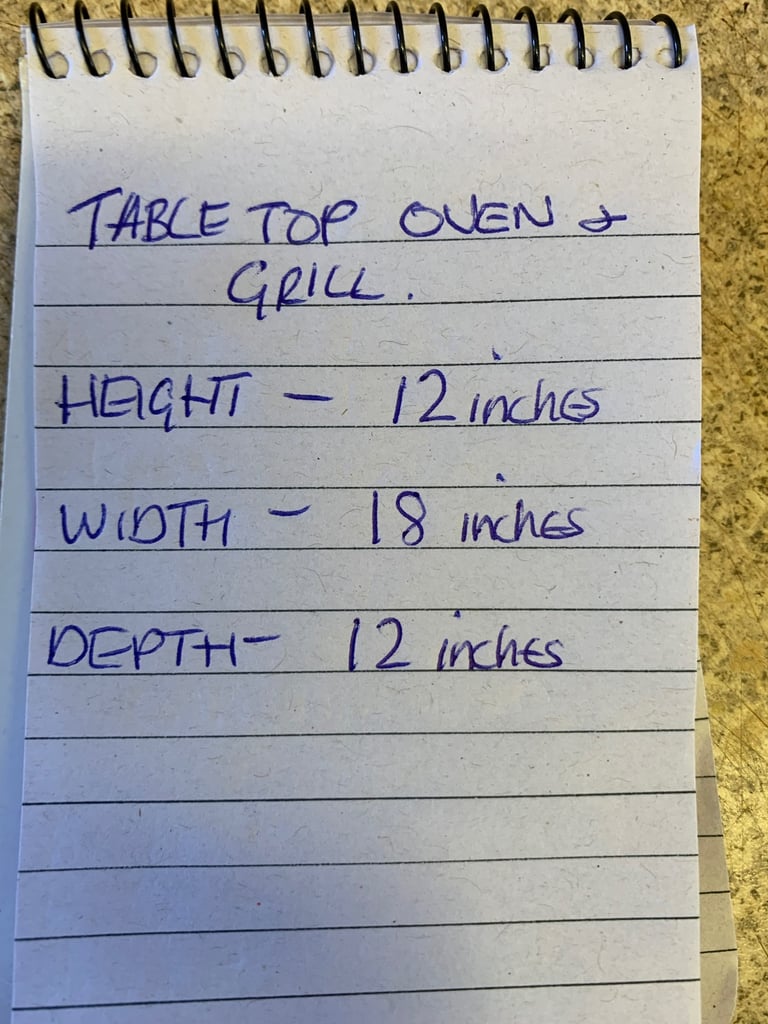 TABLE TOP OVEN &
GRILL.
HEIGHT - 12 inches
WIDTH - 18 inches
DEPTH - 12 inches